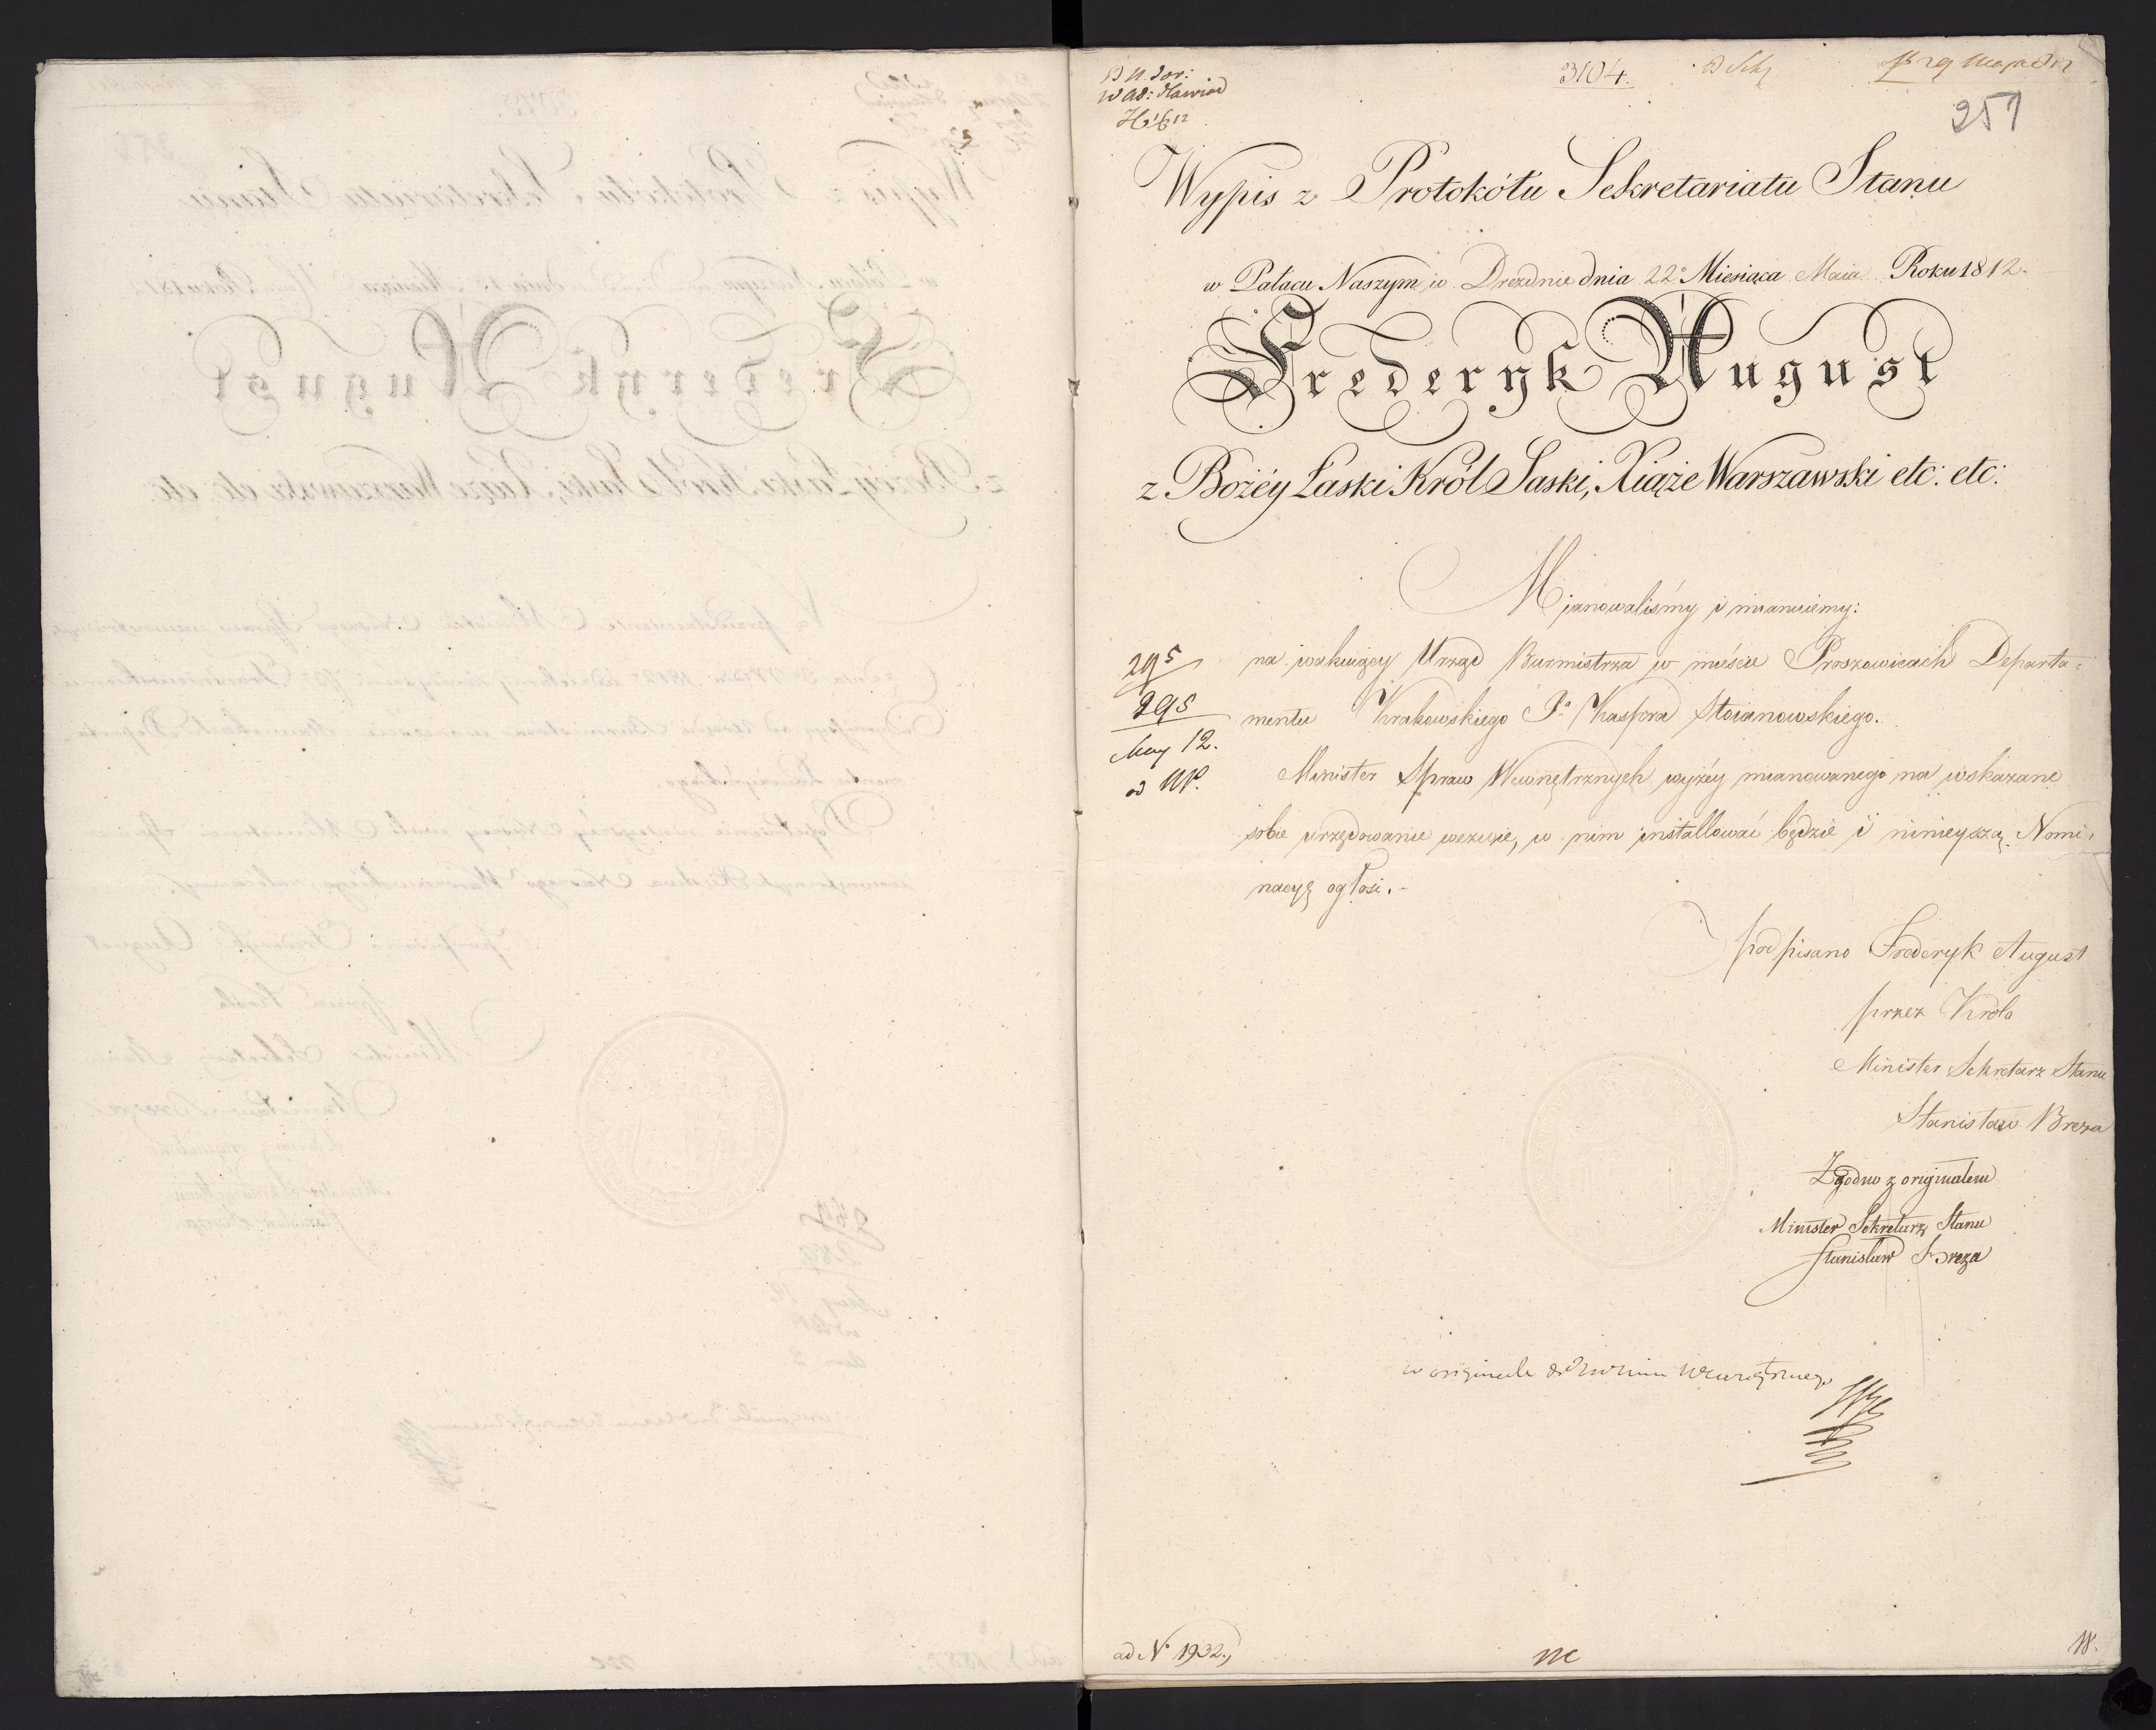 3104.
257
Wypis z Protokółu Sekretariatu Stanu
w Pałacu Naszym w Dreznie dnia 22º Miesiąca Maia Roku 1812.
Frederyk August
z Bożéy Łaski Król Saski, Xiąże Warszawski etc: etc:
Mianowaliśmy i mianuiemy:
na wakuiący Urząd Burmistrza w mieście Proszowicach Departa-
mentu Krakowskiego Pª Kaspra Stoianowskiego.
Minister Spraw Wewnętrznych wyżéy mianowanego na wskazane
sobie urzędowanie wezwie, w nim installować będzie i ninieyszą Nomi-
nacyę ogłosi.-
295
295
May 12.
podpisano Frederyk August
przez Króla
Minister Sekretarz Stanu
Stanisław Breza
Zgodno z originałem
Minister Sekretarz Stanu
Stanisław Breza
w originale
ad Nº 1932.